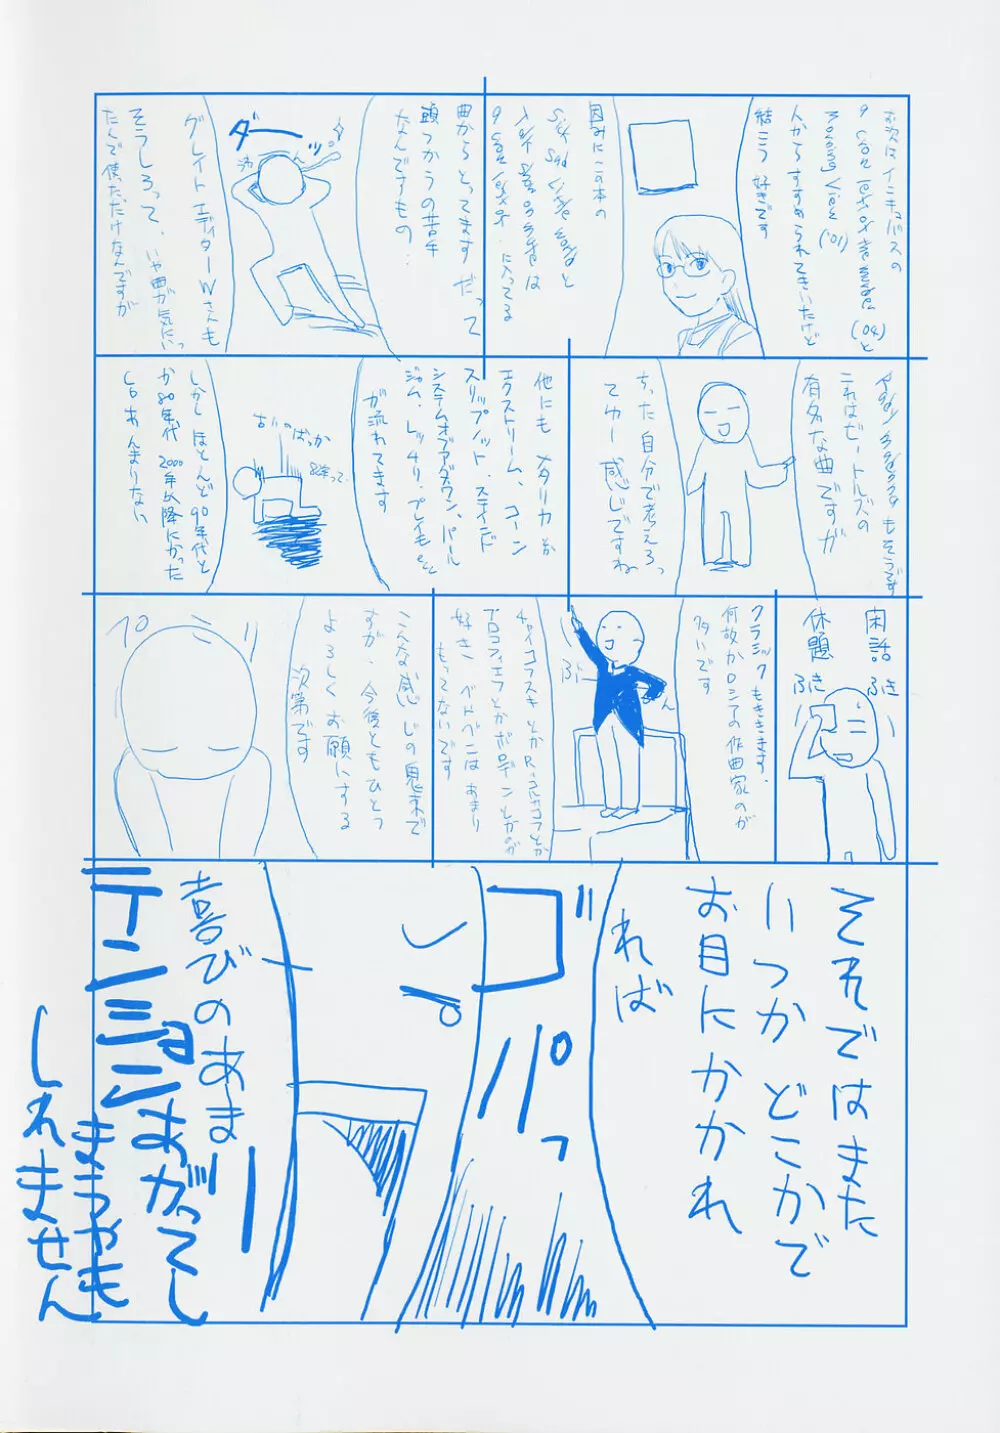 お次は インキュバスの
人からすすめられてきいたけど
結こう 好きです
因みにこの本の
に入ってる
曲からとってます だって
頭つかうの苦手
なんですもの
ダーッ
グレイト エディターWさんも
そうしろって、いや曲が気にいっ
たんで使ただけなんですが
もそうです
これはビートルズの
有名な曲ですが
ちった 自分で考えろっ
てゆー 感じですね
他にも メタリカ か
エクストリーム、コーン
スリップノット、ステインド
システムオブアダウン、パール
ジャム、レッチリ、プレイモ etc
が流れてます
古いのばっか
しかし ほとんど 90年代と
か80年代 2000年以降にかった
CD あんまりない
閑話
休題
ふき
ふき
クラシック もききます。
何故かロシアの作曲家のが
多いです
チャイコフスキとかR=コルサコフとか
プロコフィエフとかボロディンとかのが
好き ベトベンは あまり
もってないです
こんな感じの鬼束で
すが、今後ともひとつ
よろしく お願いする
次第です
ペコリ
それではまた
いつか どこかで
お目にかかれ
れば
ガバっ
喜びのあまり
テンションあがってし
まうかも
しれません